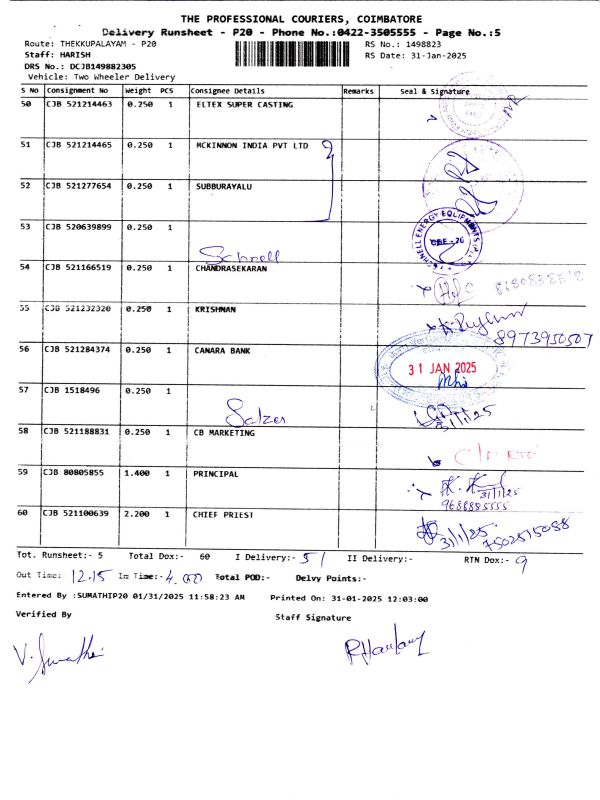 THE PROFESSIONAL COURIERS, COIMBATORE
Delivery Runsheet - P20 - Phone No.:0422-3505555 - Page No.:5
Route: THEKKUPALAYAM - P20 RS No.: 1498823
Staff: HARISH RS Date: 31-Jan-2025
DRS No.: DCJB149882305
Vehicle: Two Wheeler Delivery
S No Consignment No Weight PCS Consignee Details Remarks Seal & Signature
50 CJB 521214463 0.250 1 ELTEX SUPER CASTING
51 CJB 521214465 0.250 1 MCKINNON INDIA PVT LTD
52 CJB 521277654 0.250 1 SUBBURAYALU
53 CJB 520639899 0.250 1 Schnell CBE - 26
54 CJB 521166519 0.250 1 CHANDRASEKARAN
55 CJB 521232320 0.250 1 KRISHNAN 8973950507
56 CJB 521284374 0.250 1 CANARA BANK 31 JAN 2025
57 CJB 1518496 0.250 1 Salzer 31/1/25
58 CJB 521188831 0.250 1 CB MARKETING
59 CJB 80805855 1.400 1 PRINCIPAL 31/1/25
9688885555
60 CJB 521100639 2.200 1 CHIEF PRIEST 31/1/25 7502515088
Tot. Runsheet:- 5 Total Dox:- 60 I Delivery:- 51 II Delivery:- RTN Dox:- 9
Out Time: 12.15 In Time:- 4.00 Total POD:- Delvy Points:-
Entered By :SUMATHIP20 01/31/2025 11:58:23 AM Printed On: 31-01-2025 12:03:00
Verified By Staff Signature
V. Sumathi